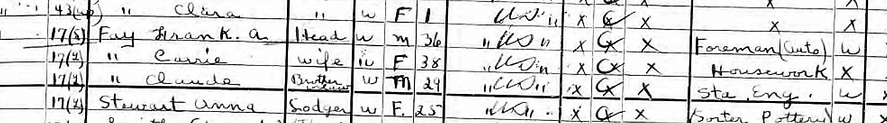 " 43(up) " Clara " W F 1 " US " X C X X X
17(2) Fay Frank. A Head W M 36 " US " X C X Foreman (Auto) W
17(2) " Carrie wife W F 38 " US " X C X Housework X
17(2) " Claude Brother W M 29 " US " X C X Sta. Eng. W X
17(2) Stewart Anna Lodger W F. 25 " US " X C X Sorter Pottery W X